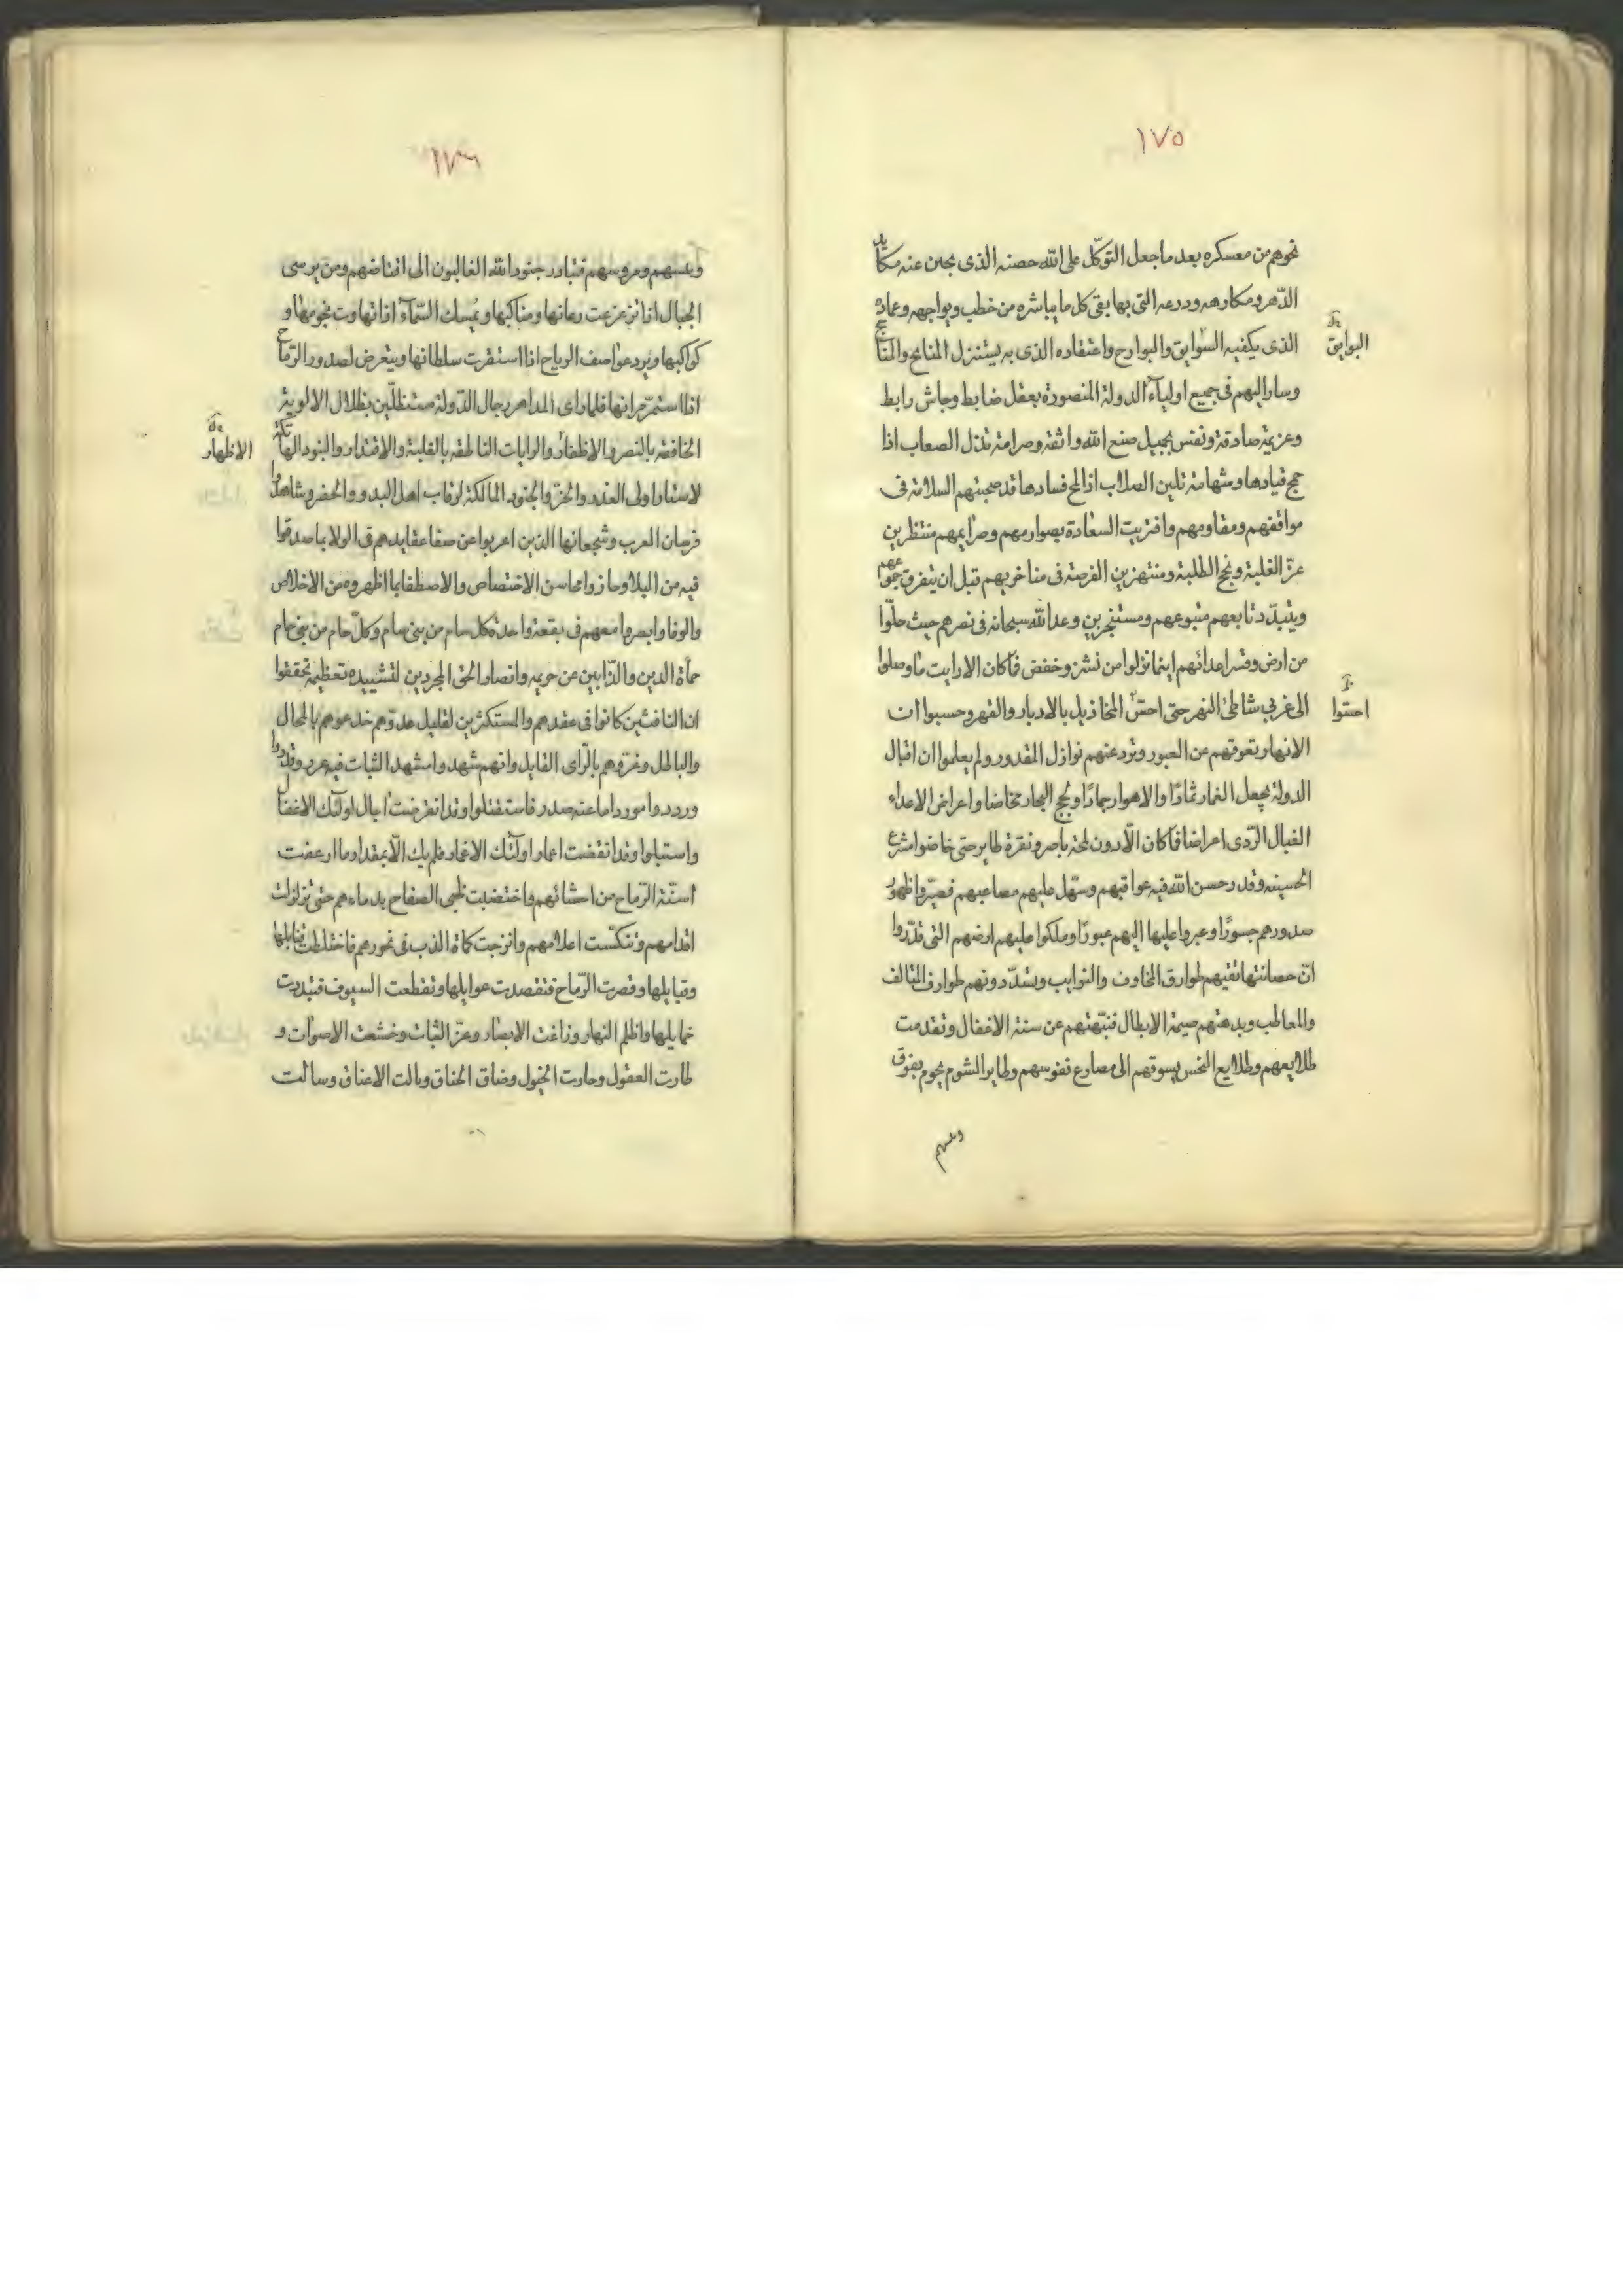 ١٧٥
نحوهم من معسكره بعد ما جعل التوكّل على الله حصنه الذى يجين عنه مكايد
الدّهر ومكارهه ودرعه التى بها يقى كل ما يباشره من خطب ويواجهه وعماده
الذى يكفيه السوابق والبوارح واعتقاده الذى به يستنزل المنايح والمنايح
البوايق
وسار اليهم فى جميع اولياء الدولة المنصورة بعقل ضابط وجاش رابط
وعزيمة صادقة ونفس بجميل صنع الله واثقه وصرامة تذل الصعاب اذا
جمح قيادها وشهامة تلين الصلاب اذا لح فسادها قد صحبتهم السلامة فى
مواقفهم ومقاومهم وافتريت السعادة بصوارمهم وصرايمهم منتظرين
عزّ الغلبة ونجح الطلبة ومنتهزين الفرصة فى مناخريهم قبل ان يتفرق جموعهم
ويتبدّد تابعهم متبوعهم ومستنجزين وعد الله سبحانه فى نصرهم حيث حلّوا
من ارض وقسر اعدائهم اينما نزلوا من نشز وخفض فما كان الا رايت ما وصلوا
الى غربي شاطئ النهر حتى احسّ المخاذيل بالادبار والقهر وحسبوا ان
احسّوا
الانهار تعوقهم عن العبور وتردعنهم نوازل المقدور ولم يعلموا ان اقبال
الدولة يجعل الغمار ثمادًا والاهوار جمادًا ولجج البحار مخاضا واعراض الاعداء
لقبال الرّدى اعراضا فما كان الّا دون لمحة باصر ونقرة طاير حتى خاضوا مشرع
الحسينيه وقدر حسن الله فيه عواقبهم وسهّل عليهم مصاعبهم فصيّروا ظهور
صدورهم جسورًا وعبروا عليها اليهم عبورًا وملكوا عليهم ارضهم التى قدّروا
انّ حصانتها تقيهم طوارق المخاوف والنوايب وتسدّ دونهم طوارف المتالف
والمعاطب وبدهتهم صيحة الابطال فنبّهتهم عن سنة الاغفال وتقدمت
طلايعهم وطلايع النحس يسوقهم الى مصارع نفوسهم وطاير الشوم يحوم بفوق
١٧٦
ورئيسهم ومروسهم فتبادر جنود الله الغالبون الى اقتناصهم ومن يرسى
الجبال اذا تزعزعت رعانها ومناكبها ويمسك السّماء اذا تهاوت نجومها و
كواكبها ويردع عواصف الرياح اذا استقرت سلطانها ويتعرض لصدور الرّماح
اذا استمرّ جرانها فلما راى المدابر رجال الدّولة مستظلّين بظلال الالوية
الخافقه بالنصر والاظفار والرايات الناطقه بالغلبة والاقتدار والبنود الهاتكة
الاظهار
لاستار اولى الغدر والختر والجنود المالكة لرقاب اهل البدو والحضر وشاهدوا
فرسان العرب وشجعانها الذين اعربوا عن صفا عقايدهم فى الولا بما صدقوا
فيه من البلا وحازوا محاسن الاختصاص والاصطفا بما اظهروه من الاخلاص
والوفا وابصروا معهم فى بقعة واحدة كل سام من بنى سام وكلّ حام من بنى حام
حماة الدين والذّابين عن حريمه وانصار الحق المجردين لتشييده تعظيمه تحققوا
ان النافثين كانوا فى عقدهم والمستكثرين لقليل عددهم خدعوهم بالمحال
والباطل وغرّوهم بالرّاى الفايل وانهم شهدوا مشهد الثبات فيه غرر وقدروا
ووردوا موردا ما عنه صدر فاستقتلوا وقد انقرضت اجال اولئك الاغفال
واستبلوا وقد انقضت اعمار اولئك الاغمار فلم يك الّا بمقدار ما ارعفت
اسنّة الرّماح من احشائهم واختضبت ظبى الصفاح بدماءهم حتى تزلزلت
اقدامهم وتنكّست اعلامهم وانزجت كماة الذب فى نحورهم فاختلطت قنابلها
وقبايلها وقصرت الرّماح فتقصدت عواملها وتقطعت السيوف فتبددت
خمايلها واظلم النهار وزاغت الابصار وعزّ الثبات وخشعت الاصوات و
طارت العقول وحارت الخيول وضاق الخناق ومالت الاعناق وسالت